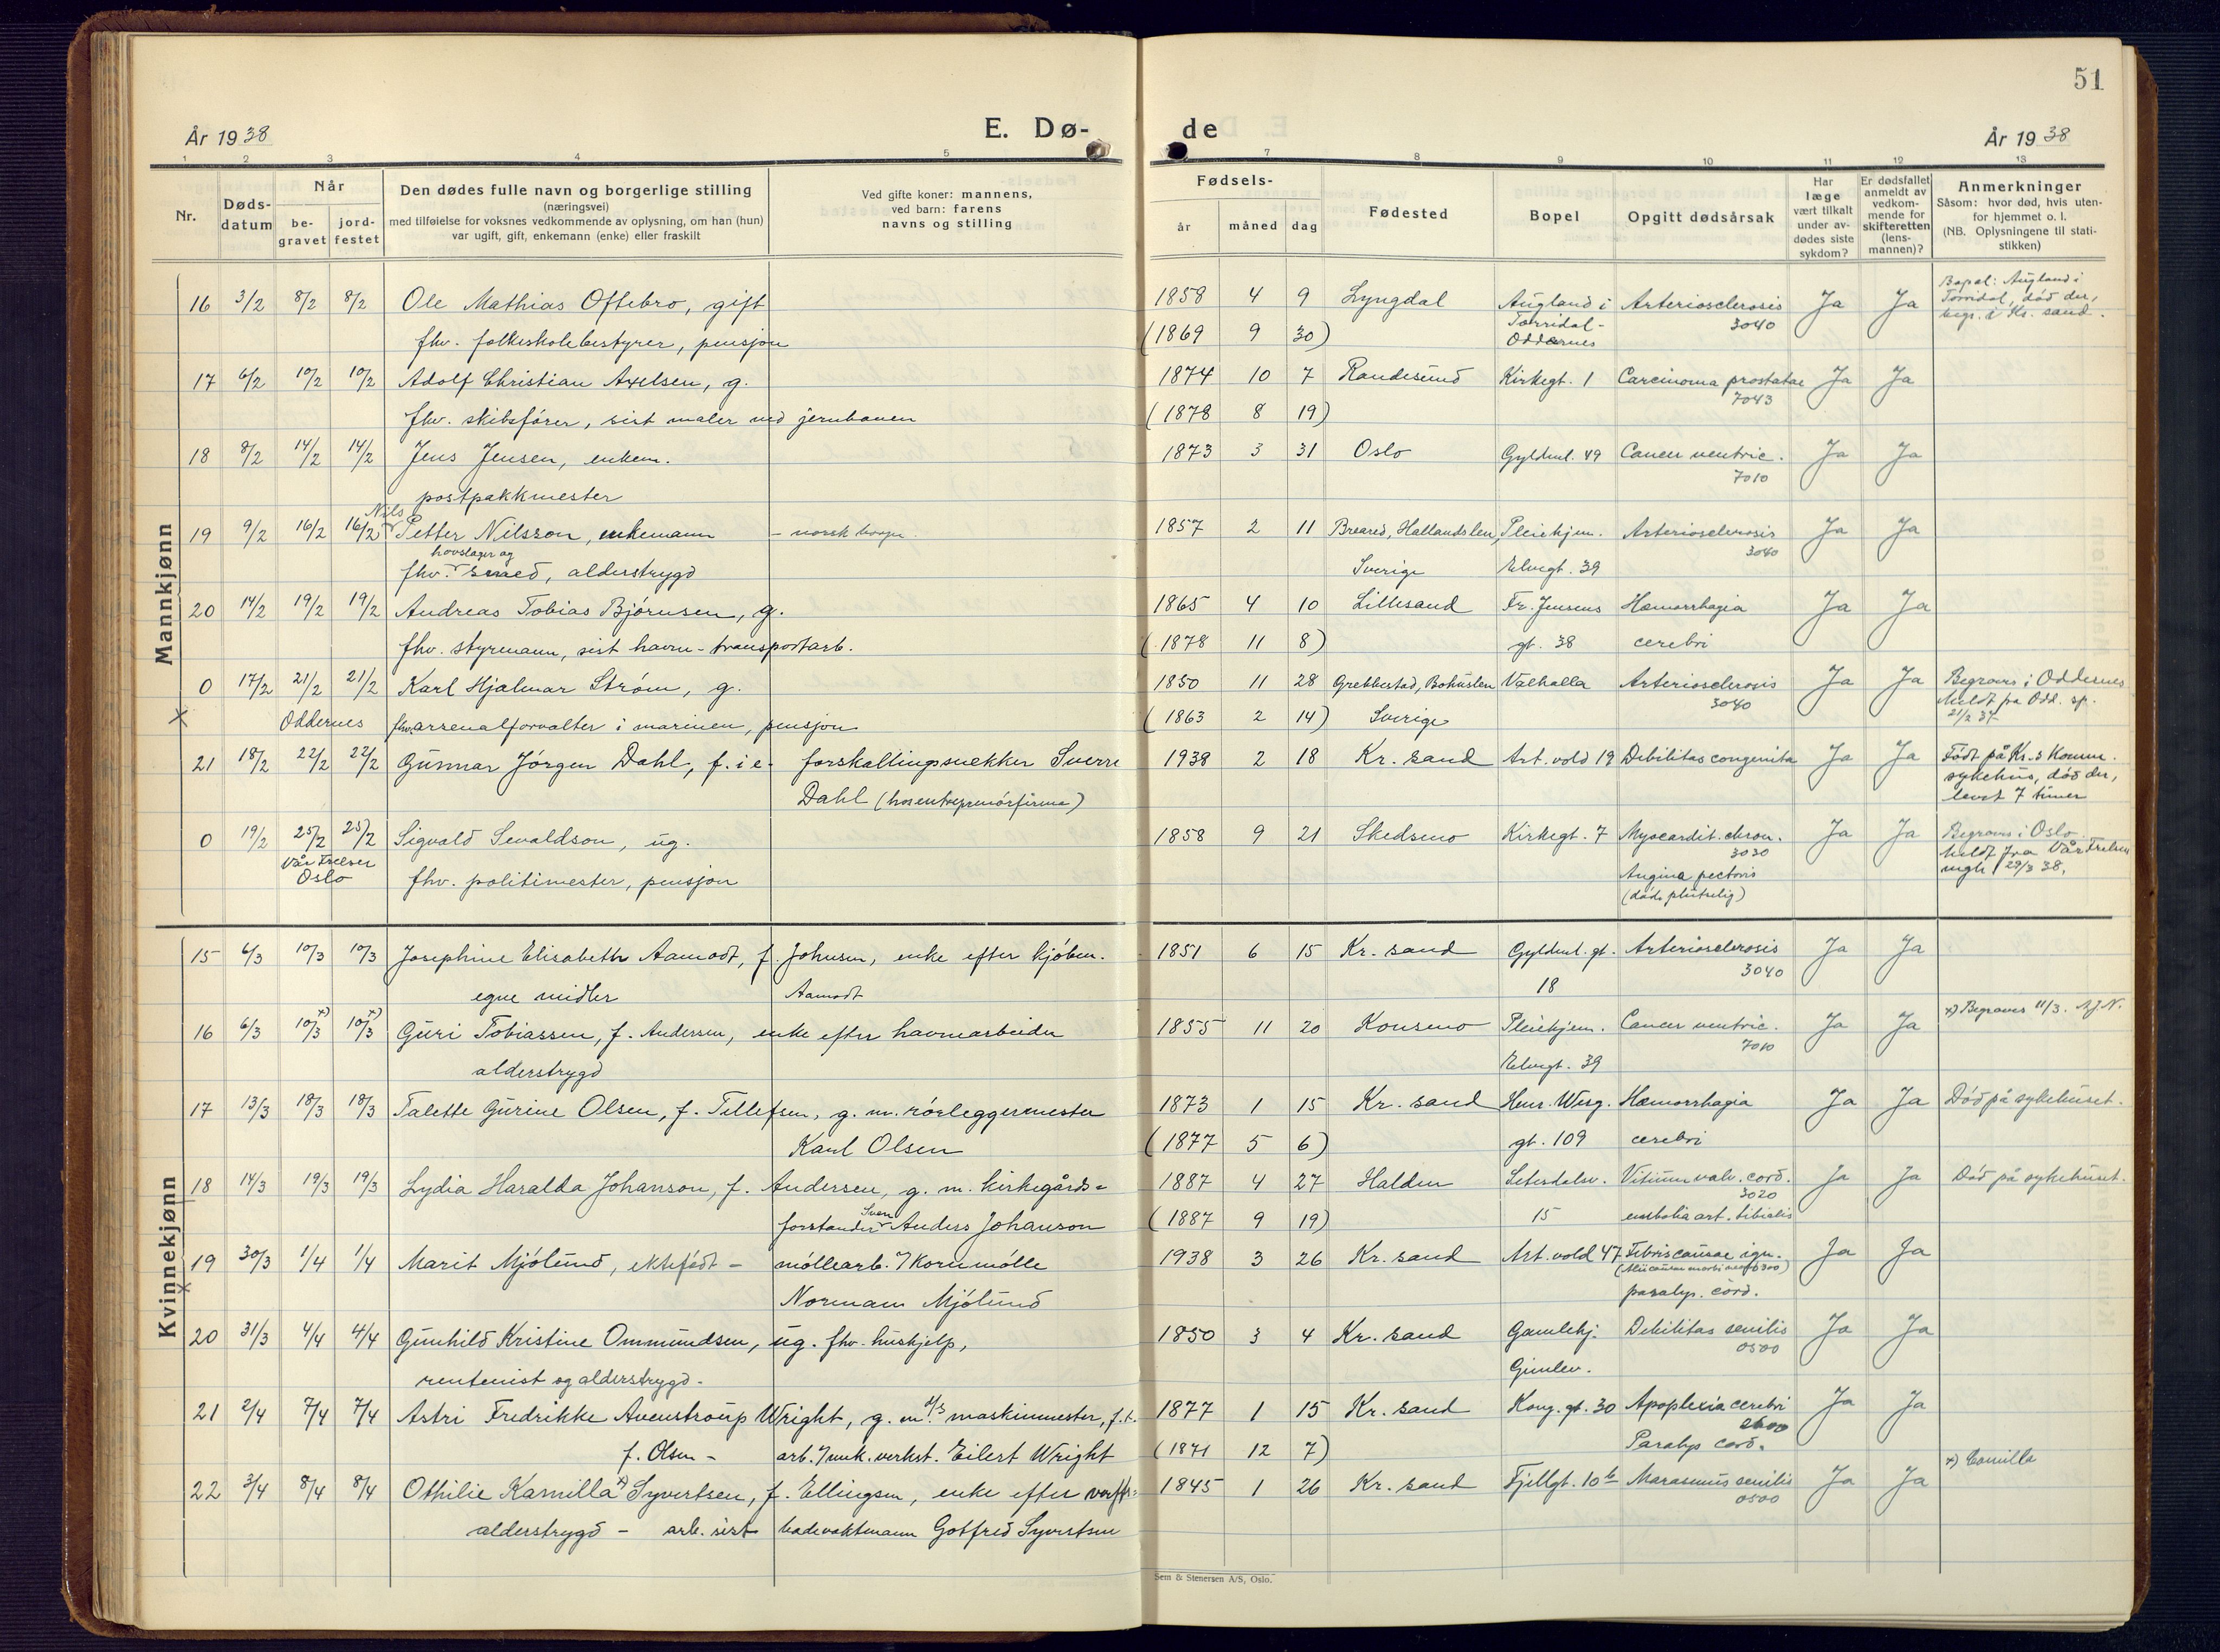 51
År 1938
E. Dø-
de
År 1938
1 2 3 4 5
7 8 9 10 11 12 13
Nr.
Døds-
datum
Når
be-
gravet
jord-
festet
Den dødes fulle navn og borgerlige stilling
(næringsvei)
med tilføielse for voksnes vedkommende av oplysning, om han (hun)
var ugift, gift, enkemann (enke) eller fraskilt
Ved gifte koner: mannens,
ved barn: farens
navns og stilling
Fødsels-
år
måned
dag
Fødested
Bopel
Opgitt dødsårsak
Har
læge
vært tilkalt
under av-
dødes siste
sykdom?
Er dødsfallet
anmeldt av
vedkom-
mende for
skifteretten
(lens-
mannen)?
Anmerkninger
Såsom: hvor død, hvis uten-
for hjemmet o. l.
(NB. Oplysningene til stati-
stikken)
Mannkjønn
16 3/2 8/2 8/2 Ole Mathias Oftebro, gift 1858 4 9 Lyngdal Augland i Arteriosclerosis Ja Ja Bopel: Augland i
Torridal, død der,
begr. i Kr. sand.
fhv. folkeskolebestyrer, pensjon (1869 9 30) Torridal- 3040
Oddernes
17 6/2 10/2 10/2 Adolf Christian Axelsen, g. 1874 10 7 Randesund Kirkegt. 1 Carcinoma prostatae Ja Ja
7043
fhv. skibsfører, sist maler ved jernbanen (1878 8 19)
18 8/2 14/2 14/2 Jens Jensen, enkem. 1873 3 31 Oslo Gyldenl. 49 Cancer ventric. Ja Ja
7010
postpakkmester
Nils
19 9/2 16/2 16/2 Petter Nilsson, enkemann - norsk borger. 1857 2 11 Breared, Hallandslen, Pleiehjem. Arteriosclerosis Ja Ja
3040
hovslager og
fhv. smed, alderstrygd Sverige Elvegt. 39
20 14/2 19/2 19/2 Andreas Tobias Bjørnsen, g. 1865 4 10 Lillesand Fr. Jensens Hæmorrhagia Ja Ja
fhv. styrmann, sist havn-transportarb. (1878 11 8) gt. 38 cerebri
0 17/2 21/2 21/2 Karl Hjalmar Strøm, g. 1850 11 28 Grebbestad, Bohuslen Valhalla Arteriosclerosis Ja Ja Begraves i Oddernes
3040
Meldt fra Odd. sp.
21/2 37
x Oddernes fhv. arsenalforvalter i marinen, pensjon (1863 2 14) Sverige
21 18/2 22/2 22/2 Gunnar Jørgen Dahl, f. i e- forskallingssnekker Sverre 1938 2 18 Kr. sand Art. vold 19 Debilitas congenita Ja Ja Født på Kr.s Komm.
sykehus, død der,
levet 7 timer
Dahl (hos entreprenørfirma)
0 19/2 25/2 25/2 Sigvald Sevaldson, ug. 1858 9 21 Skedsmo Kirkegt. 7 Myocardit. chron. Ja Ja Begraves i Oslo.
3030
Meldt fra Vår Frelsers
mgh 29/3 38.
Vår Frelser
Oslo
fhv. politimester, pensjon Angina pectoris
(døde plutselig)
Kvinnekjønn
15 6/3 10/3 10/3 Josephine Elisabeth Aamodt, f. Johnsen, enke efter kjøbm. 1851 6 15 Kr. sand Gyldenl. gt. Arteriosclerosis Ja Ja
3040
egne midler Aamodt 18
16 6/3 10/3 x) 10/3 x) Guri Tobiassen, f. Andersen, enke efter havnearbeider 1855 11 20 Konsmo Pleiehjem. Cancer ventric. Ja Ja x) Begraves 11/3. N.J.N.
7010
alderstrygd Elvegt. 39
17 13/3 18/3 18/3 Talette Gurine Olsen, f. Tellefsen, g. m. rørleggermester 1873 1 15 Kr. sand Henr. Werg. Hæmorrhagia Ja Ja Død på sykehuset.
Karl Olsen (1877 5 6) gt. 109 cerebri
18 14/3 19/3 19/3 Lydia Haralda Johanson, f. Andersen, g. m. kirkegårds- 1887 4 27 Halden Setesdalsv. Vitium valv. cord. Ja Ja Død på sykehuset.
3020
forstander Sven Anders Johanson (1887 9 19) 15 embolia art. tibialis
19 30/3 1/4 1/4 Marit Mjølund, ektefødt - møllearb. v/ Kornmølle 1938 3 26 Kr. sand Art. vold 47 Febris causae ign. Ja Ja
x Normann Mjølund paralys. cord.
20 31/3 4/4 4/4 Gunhild Kristine Ommundsen, ug. fhv. huskjelp, 1850 3 4 Kr. sand Gamlehj. Debilitas senilis Ja Ja
0500
rentenist og alderstrygd. Gimlev.
21 2/4 7/4 7/4 Astri Fredrikke Avenstroup Wright, g. m. maskinmester, f.t. 1877 1 15 Kr. sand Kong. gt. 30 Apoplexia cerebri Ja Ja
2600
f. Olsen - arb. v/ mek. verkst. Eilert Wright (1871 12 7) Paralys cord.
22 3/4 8/4 8/4 Othilie Kamilla x) Syvertsen, f. Ellingsen, enke efter verfts- 1845 1 26 Kr. sand Fjellgt. 10 b Marasmus senilis Ja Ja x) Camilla
0500
alderstrygd - arb. sist badevaktmann Gotfred Syvertsen
Sem & Stenersen A/S, Oslo.